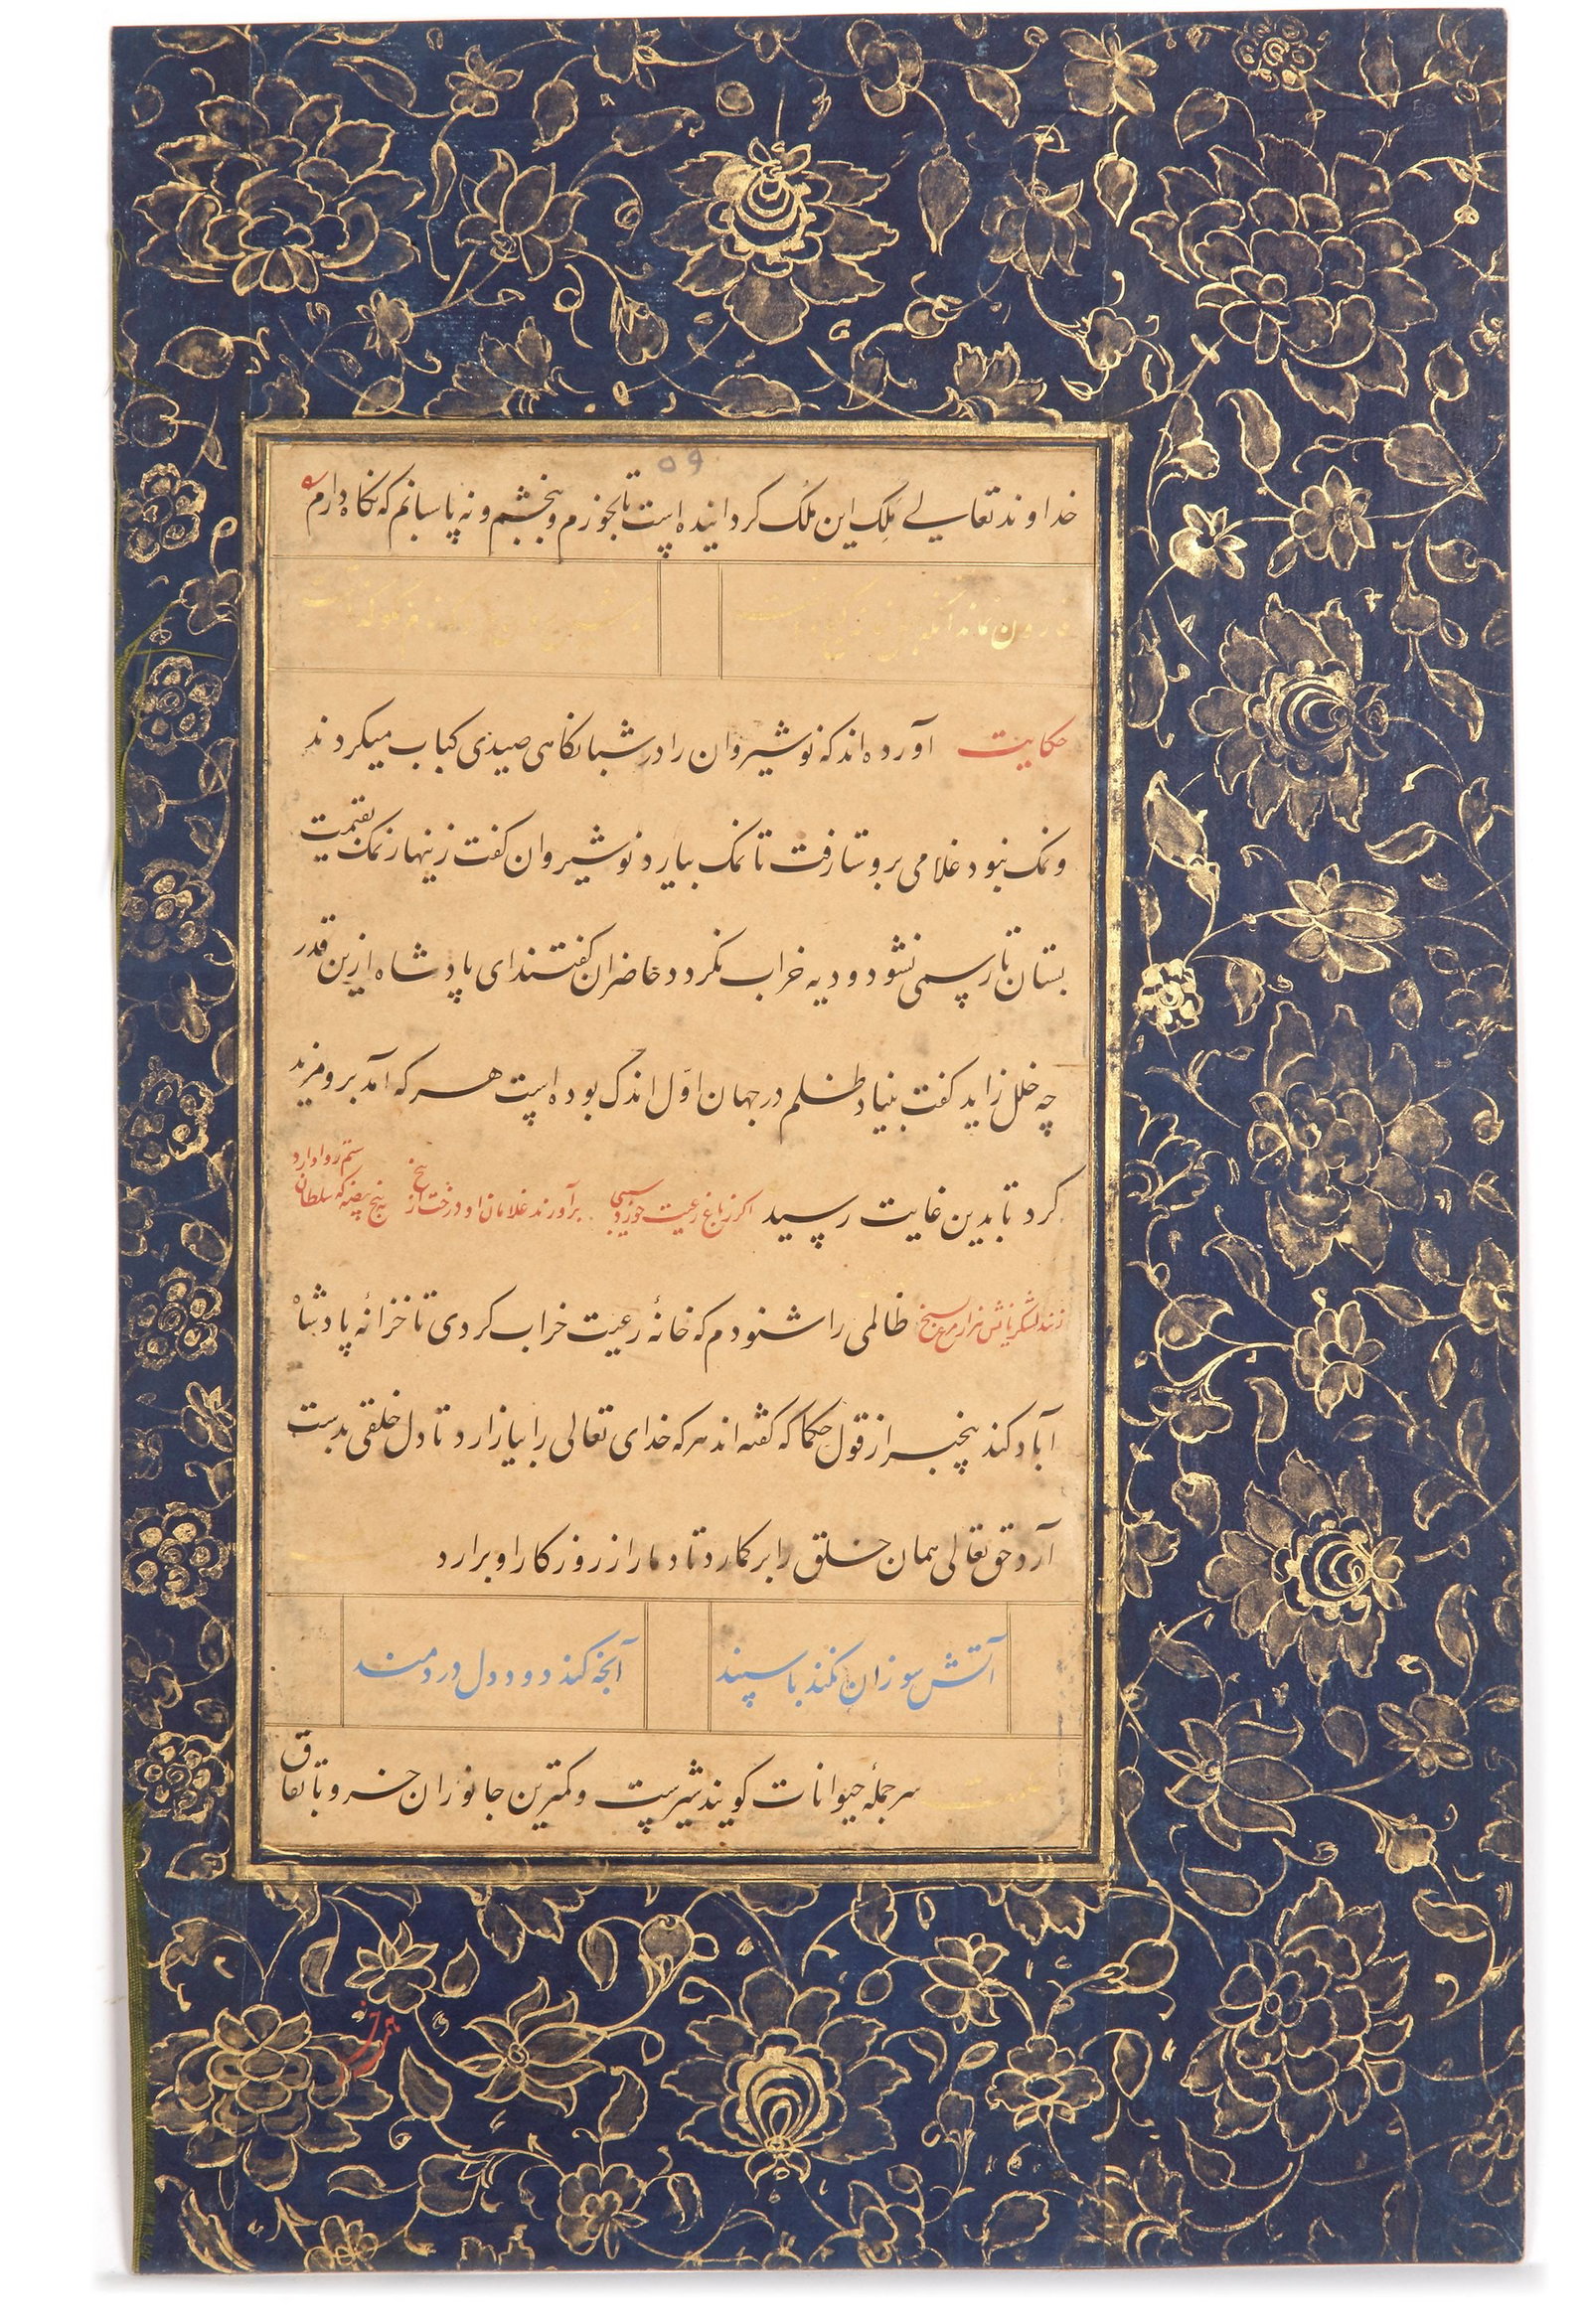 ۵۹
خداوند تعالی ملک این ملک گردانیده است تا بخورم و ببخشم و نه پاسبانم که نگاه دارم
قارون نماند آنکه
حکایت آورده اند که نوشیروان را در شبانگاهی صیدی کباب میکردند
و نمک نبود غلامی بروستا رفت تا نمک بیارد نوشیروان گفت زینهار نمک بقیمت
بستان تا رسمی نشود و دیه خراب نگردد حاضران گفتند ای پادشاه ازین قدر
چه خلل زاید گفت بنیاد ظلم در جهان اول اندک بوده است هر که آمد برو مزید
کرد تا بدین غایت رسید اگر ز باغ رعیت خورد سیبی برآورند غلامان او درخت از بیخ پنج بیضه که سلطان ستم روا دارد
زنند لشکریانش هزار مرغ بسیخ ظالمی را شنودم که خانهٔ رعیت خراب کردی تا خزانهٔ پادشاه
آباد کند بیخبر از قول حکما که گفته اند هر که خدای تعالی را بیازارد تا دل خلقی بدست
آرد حق تعالی همان خلق را برگمارد تا دمار از روزگار او برارد
آتش سوزان نکند با سپند آنچه کند دود دل دردمند
سر جملهٔ حیوانات گویند شیرست و کمترین جانوران خر و باتفاق